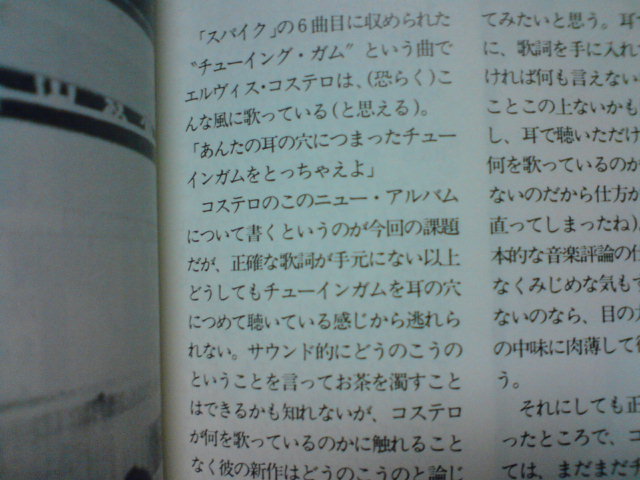 「スパイク」の6曲目に収められた
〝チューイング・ガム〟という曲で
エルヴィス・コステロは、(恐らく)こ
んな風に歌っている(と思える)。
「あんたの耳の穴につまったチュー
インガムをとっちゃえよ」
コステロのこのニュー・アルバム
について書くというのが今回の課題
だが、正確な歌詞が手元にない以上
どうしてもチューインガムを耳の穴
につめて聴いている感じから逃れら
れない。サウンド的にどうのこうの
ということを言ってお茶を濁すこと
はできるかも知れないが、コステロ
が何を歌っているのかに触れること
なく彼の新作はどうのこうのと論じ
てみたいと思う。耳
に、歌詞を手に入れ
ければ何も言えない
ことこの上ないかも
し、耳で聴いただけ
何を歌っているのか
ないのだから仕方が
直ってしまったね)。
本的な音楽評論の仕
なくみじめな気もす
ないのなら、目の
の中味に肉薄して
う。
それにしても正
ったところで、コ
ては、まだまだチ